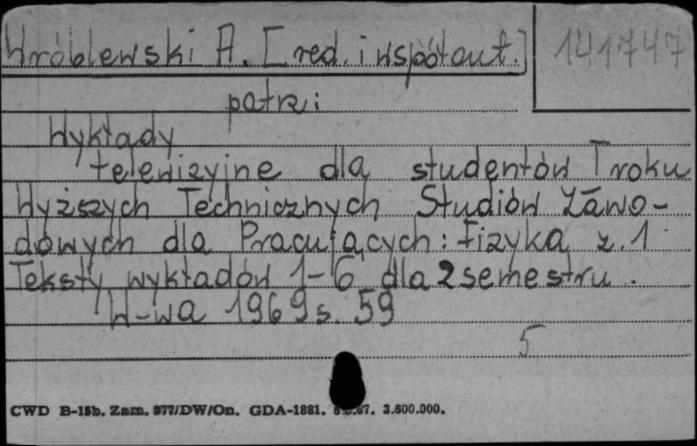 Wróblewski A. [red. i współaut.]
141747
patrz:
Wykłady
telewizyjne dla studentów I roku
Wyższych Technicznych Studiów Zawo-
dowych dla Pracujących: Fizyka z. 1
Teksty wykładów 1-6 dla 2 semestru.
W-wa 1969 s. 59
5
CWD B-15b. Zam. 977/DW/On. GDA-1881. 67. 3.600.000.